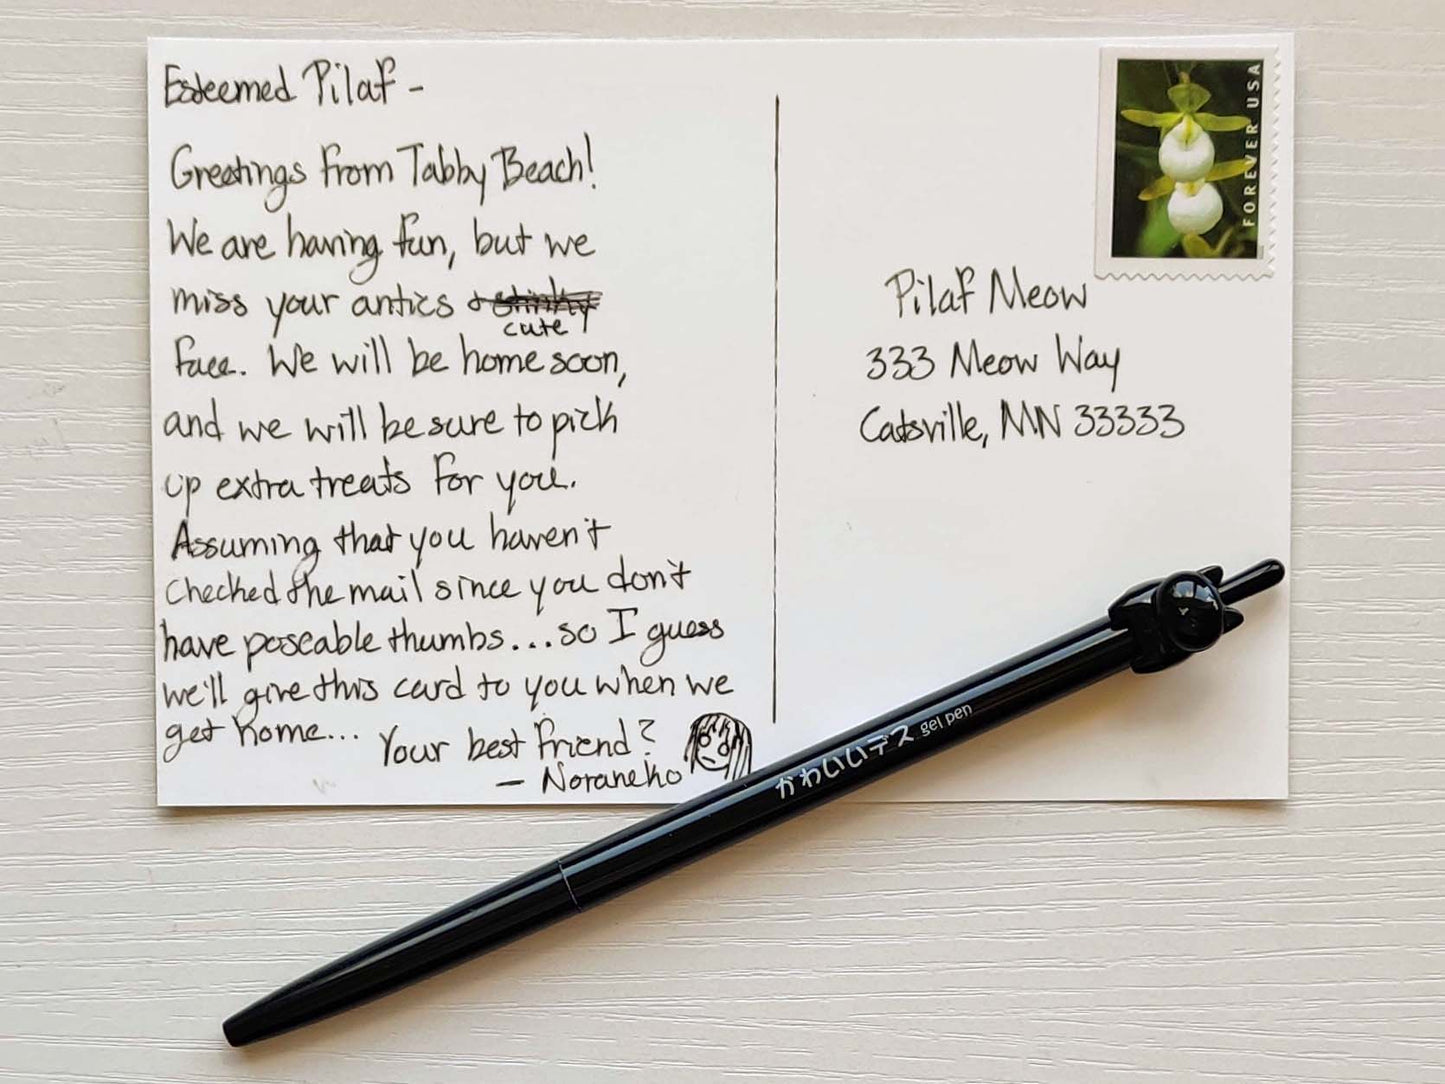 Esteemed Pilaf -
Greetings from Tabby Beach!
We are having fun, but we
miss your antics & stinky
cute
face. We will be home soon,
and we will be sure to pick
up extra treats for you.
Assuming that you haven't
checked the mail since you don't
have poseable thumbs...so I guess
we'll give this card to you when we
get home...
Your best friend?
- Noraneko
FOREVER USA
Pilaf Meow
333 Meow Way
Catsville, MN 33333
かわいいデス gel pen